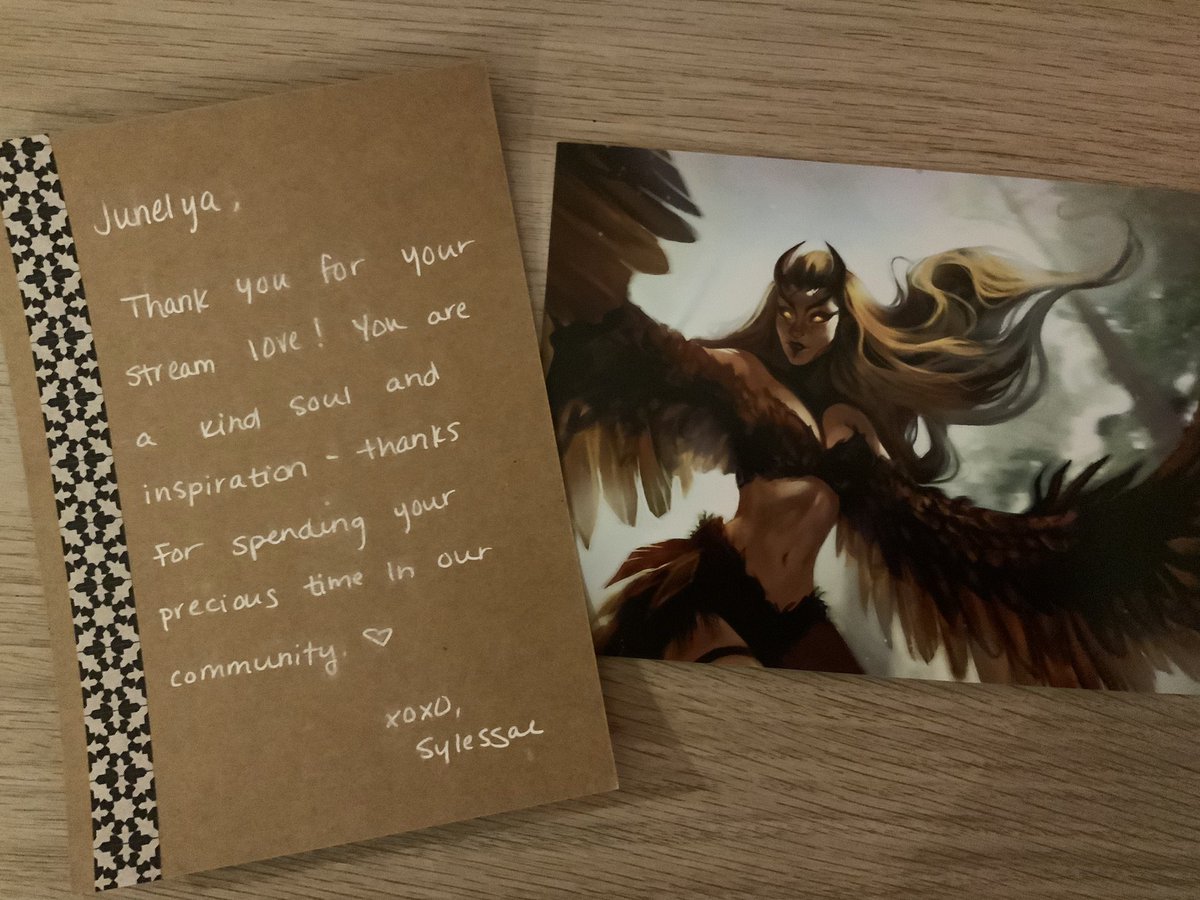 Junelya,
Thank you for your
stream love! You are
a kind soul and
inspiration - thanks
for spending your
precious time in our
community. ♡
xoxo,
Sylessae